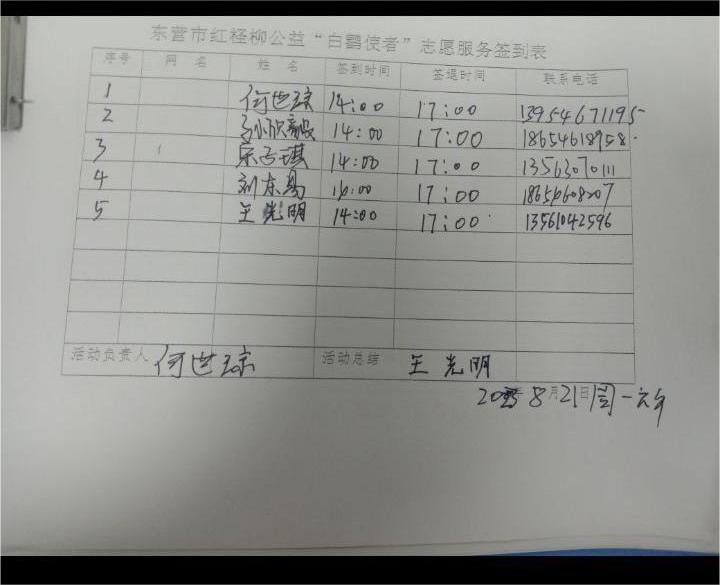 东营市红柽柳公益“白鹳使者”志愿服务签到表
序号 网 名 姓 名 签到时间 签退时间 联系电话
1 何世琮 14:00 17:00 13954671195
2 14:00 17:00 18654618958
3 宋子琪 14:00 17:00 13563070111
4 刘东 17:00
5 王光明 14:00 17:00 13561042596
活动负责人 何世琮 活动总结 王光明
8月21日